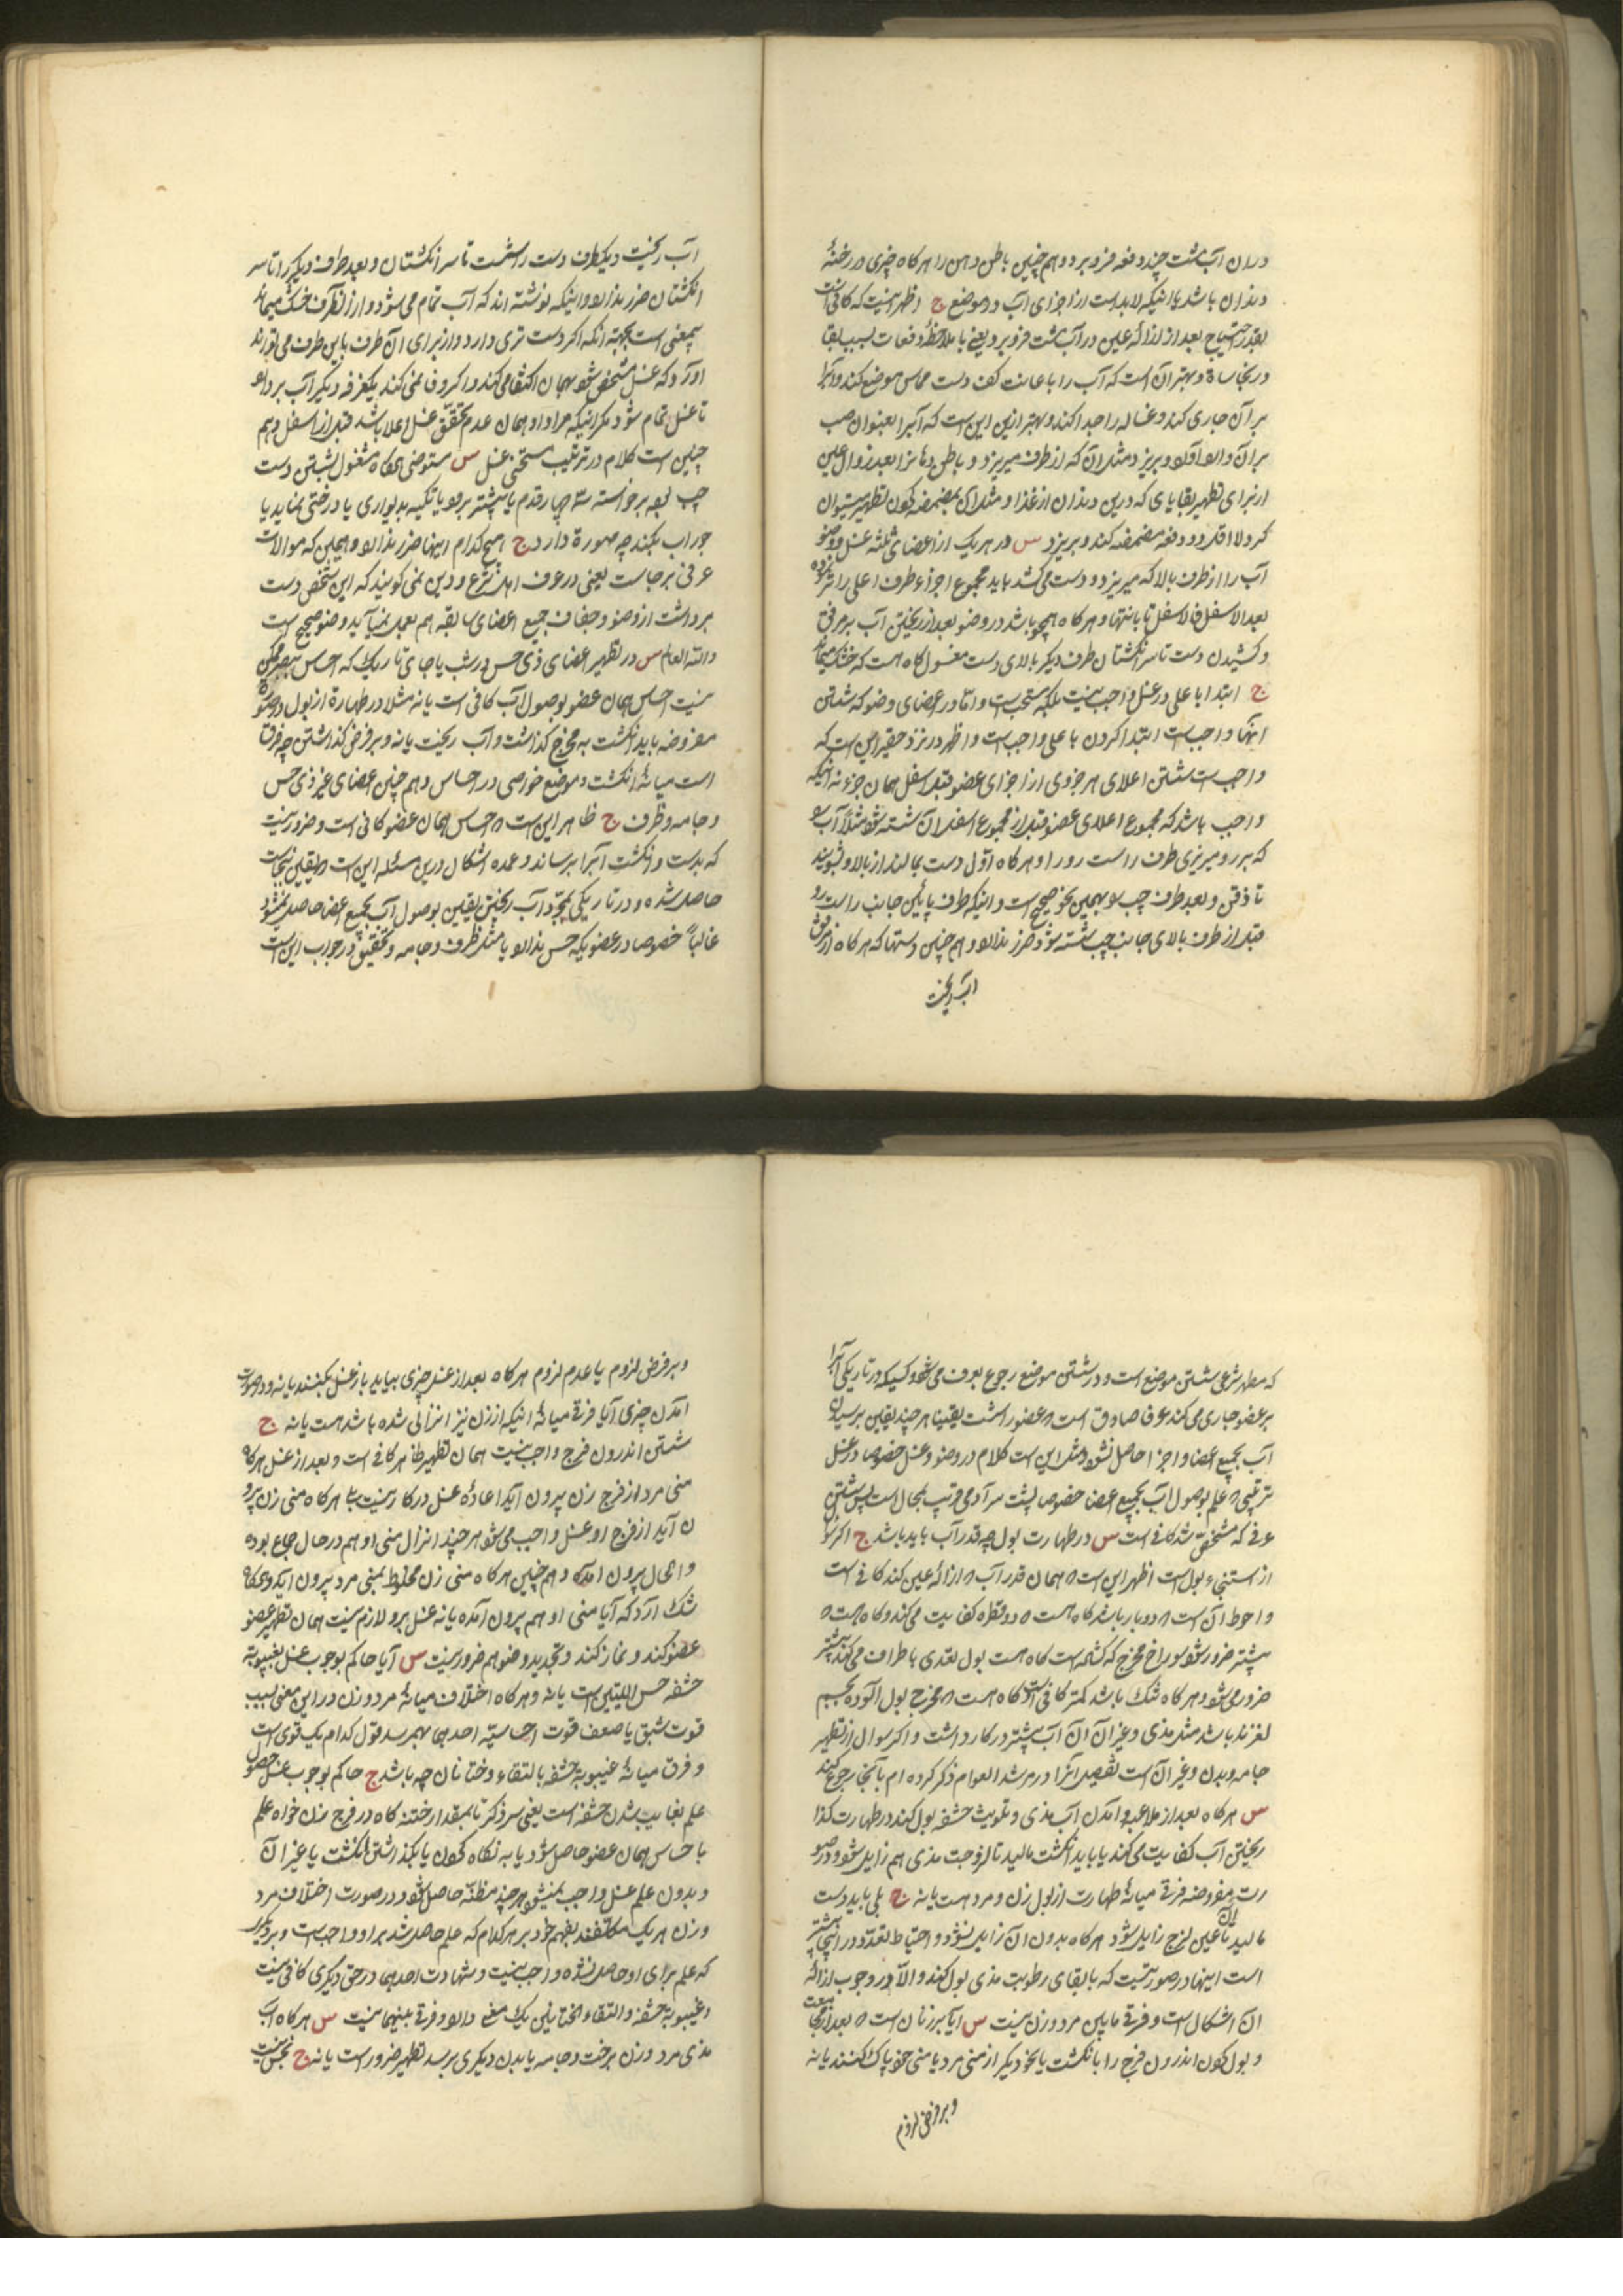 دران آب مشت چند دفعه فرو برد و هم چنین باطن دهن را هر کاه چیزی در رخنهٔ
دندان باشد یا اینکه لابد است از اجزای آب در موضع ج اظهر اینست که کافی است
بقدر احتیاج بعد از ازالهٔ عین در آب مشت فرو برد یعنی با ملاحظهٔ دفعات بسبب بقا
در نجاسة و بهتر آن است که آب را باعانت کف دست مماس موضع کند و آبرا
بر آن جاری کند و غساله را جدا کند و بهتر ازین این است که آبرا بعنوان صب
بر آن والد اولد و بریزد مثل آن که از طرف میریزد و باطن دماغ را بعد زوال عین
از برای تطهیر بقایای که در بن دندان از غذا و مثل آن بمضمضه کردن تطهیر میتوان
کرد لا اقل دو دفعه مضمضه کند و بریزد س در هر یک از اعضای ثلثه غسل وضو
آب را از طرف بالا که میریزد و دست می کشد باید مجموع اجزاء طرف اعلی را تر نموده
بعد الاسفل فالاسفل تا بانتها و هر کاه همچو باشد در وضو بعد از ریختن آب بر مرفق
و کشیدن دست تا سر انکشتان طرف دیکر بالای دست مغسول کاه هست که خشک میماند
ج ابتدا باعلی در غسل واجب نیست بلکه مستحب است و اما در اعضای وضو که شستن
اینها واجب است ابتدا کردن باعلی واجب است و اظهر در نزد حقیر این است که
واجب است شستن اعلای هر جزوی از اجزای عضو قبل از اسفل همان جزء نه اینکه
واجب باشد که مجموع اعلای عضو قبل از مجموع اسفل آن شسته شود مثلاً آب
که بر رو میریزی طرف راست رو را و هر کاه اول دست بمالند از بالا و بشویند
تا ذقن و بعد طرف چپ بهمین نحو صحیح است و اینکه طرف پائین جانب راست رو
قبل از طرف بالای جانب چپ شسته شود ضرر ندارد و هم چنین دستها که هر کاه از مرفق
آب ریخت
آب ریخت و یکطرف دست را شست تا سر انکشتان و بعد طرف دیکر را تا سر
انکشتان ضرر ندارد و اینکه نوشته اند که آب تمام می شود و از انطرف خشک میماند
بیمعنی است بجهة انکه اکر دست تری دارد و از برای آن طرف باین طرف می تواند
آورد که غسل متحقق شود بهمان اکتفا می کند و اکر وفا نمی کند یکغرفه دیکر آب بردارد
تا غسل تمام شود مکر اینکه مراد او همان عدم تحقق غسل اعلا باشد قبل از اسفل و هم
چنین است کلام در ترتیب مستحبی غسل س متوضی هرکاه مشغول بشستن دست
چپ بود برخواسته سه چهار قدم یا بیشتر برود یا تکیه بدیواری یا درختی نماید یا
جوراب بکند چه صورة دارد ج هیچ کدام اینها ضرر ندارد و همین که موالات
عرفی برجاست یعنی در عرف اهل شرع و دین نمی کویند که این شخص دست
برداشت از وضو و جفاف جمیع اعضای سابقه هم بعمل نمیآید وضو صحیح است
والله العالم س در تطهیر اعضای ذی حس در شب یا جای تاریک که احساس ببصر ممکن
نیست احساس همان عضو بوصول آب کافی است یا نه مثلا در طهارة از بول در صورة
مفروضه باید انکشت به مخرج کذاشت و آب ریخت یا نه و بر فرض کذاشتن چه فرق
است میانهٔ انکشت و موضع خواصی در احساس و هم چنین اعضای غیر ذی حس
و جامه و ظرف ج ظاهر این است که احساس همان عضو کافی است و ضرور نیست
که بدست و انکشت آبرا برساند و عمده اشکال درین مسئله این است که یقین نجاست
حاصل شده و در تاریکی بمجرد آب ریختن یقین بوصول آب بجمیع اعضا حاصل نمیشود
غالباً خصوصا در عضویکه حس ندارد یا مثل ظرف و جامه و تحقیق در جواب این است
که مطهر شرعی شستن موضع است و در شستن موضع رجوع بعرف می شود و کسیکه در تاریکی آب را
بر عضو جاری می کند عرفا صادق است که عضو را شست یقینا هر چند یقین برسیدن
آب بجمیع اعضا و اجزا حاصل نشود و مثل این است کلام در وضو و غسل خصوصا در غسل
ترتیبی که علم بوصول آب بجمیع اعضا خصوصا پشت سر آدمی قریب بمحال است پس شستن
عرفی که متحقق شد کافی است س در طهارت بول چه قدر آب باید باشد ج اکر سؤال
از استنجاء بول است اظهر این است که همان قدر آب که ازالهٔ عین کند کافی است
و احوط آن است که دو بار باشد کاه هست که دو قطره کفایت می کند و کاه هست که
بیشتر ضرور شود سوراخ مخرج که کشاده است کاه هست بول تعدی باطراف می کند بیشتر
ضرور می شود و هر کاه تنک باشد کمتر کافی است کاه هست که مخرج بول آلوده بجسم
لغزنده باشد مثل مذی و غیر آن آن آب بیشتر در کار داشت و اکر سوال از تطهیر
جامه و بدن و غیر آن است تفصیل آنرا در مرشد العوام ذکر کرده ام بآنجا رجوع کنند
س هر کاه بعد از ملاعبه و آمدن آب مذی و تلویث حشفه بول کند در طهارت کذا
ریختن آب کفایت می کند یا باید انکشت مالید تا لزوجت مذی هم زایل شود و در صو
رت مفروضه فرقی میانهٔ طهارت از بول زن و مرد هست یا نه ج بلی باید دست
مالید تا عین لزج زایل شود هر کاه بدون آن زایل نشود و احتیاط تعدد در اینجا بیشتر
است اینها در صورتیست که با بقای رطوبت مذی بول کند و الا در وجوب ازالهٔ
آن اشکال است و فرقی مابین مرد و زن نیست س آیا بر زنان است که بعد از مجامعت
و بول کردن اندرون فرج را با انکشت یا بنحو دیکر از منی مرد یا منی خود پاک کنند یا نه
و بر فرض لزوم
و بر فرض لزوم یا عدم لزوم هر کاه بعد از غسل چیزی بیاید باز غسل بکنند یا نه و در صورت
آمدن چیزی آیا فرقی میانهٔ اینکه از زن نیز انزالی شده باشد هست یا نه ج
شستن اندرون فرج واجب نیست همان تطهیر ظاهر کافی است و بعد از غسل هر کاه
منی مرد از فرج زن بیرون آید اعادهٔ غسل در کار نیست بلی هر کاه منی زن بیرو
ن آید از فرج او غسل واجب می شود هر چند انزال منی او هم در حال جماع بوده
و الحال بیرون آمده و هم چنین هر کاه منی زن مخلوط بمنی مرد بیرون آید و هرکاه
شک آرد که آیا منی او هم بیرون آمده یا نه غسل بر او لازم نیست همان تطهیر عضو
عضو کند و نماز کند و تجدید وضو هم ضرور نیست س آیا حاکم بوجوب غسل بغیبوبة
حشفه حس اللیتین است یا نه و هر کاه اختلاف میانهٔ مرد و زن در این معنی بسبب
قوت شبق یا ضعف قوت احساسیهٔ احدهما بهم رسد قول کدام یک قوی است
و فرق میانهٔ غیبوبة حشفه با التقاء و ختانان چه باشد ج حاکم بوجوب غسل حصول
علم بغایب شدن حشفه است یعنی سر ذکر تا بمقدار ختنه کاه در فرج زن خواه علم
باحساس همان عضو حاصل شود یا به نکاه کردن یا بکذاشتن انکشت یا غیر آن
و بدون علم غسل واجب نمیشود هر چند مظنّه حاصل شود و در صورت اختلاف مرد
و زن هر یک مکلفند بفهم خود بر هر کدام که علم حاصل شد بر او واجب است و بر دیکری
که علم برای او حاصل نشده واجب نیست و شهادت احدهما در حق دیکری کافی نیست
و غیبوبة حشفه و التقاء الختانین یک معنی دارد و فرقی بینهما نیست س هر کاه آب
مذی مرد و زن برخت و جامه یا بدن دیکری برسد تطهیر ضرور است یا نه ج نجس نیست